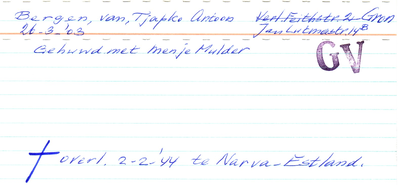 Bergen, van, Tjapko Antoon Gron
26-3-'03 Jan Lutmastr 14B
Gehuwd met Menje Mulder
GV
overl. 2-2-'44 te Narva-Estland.